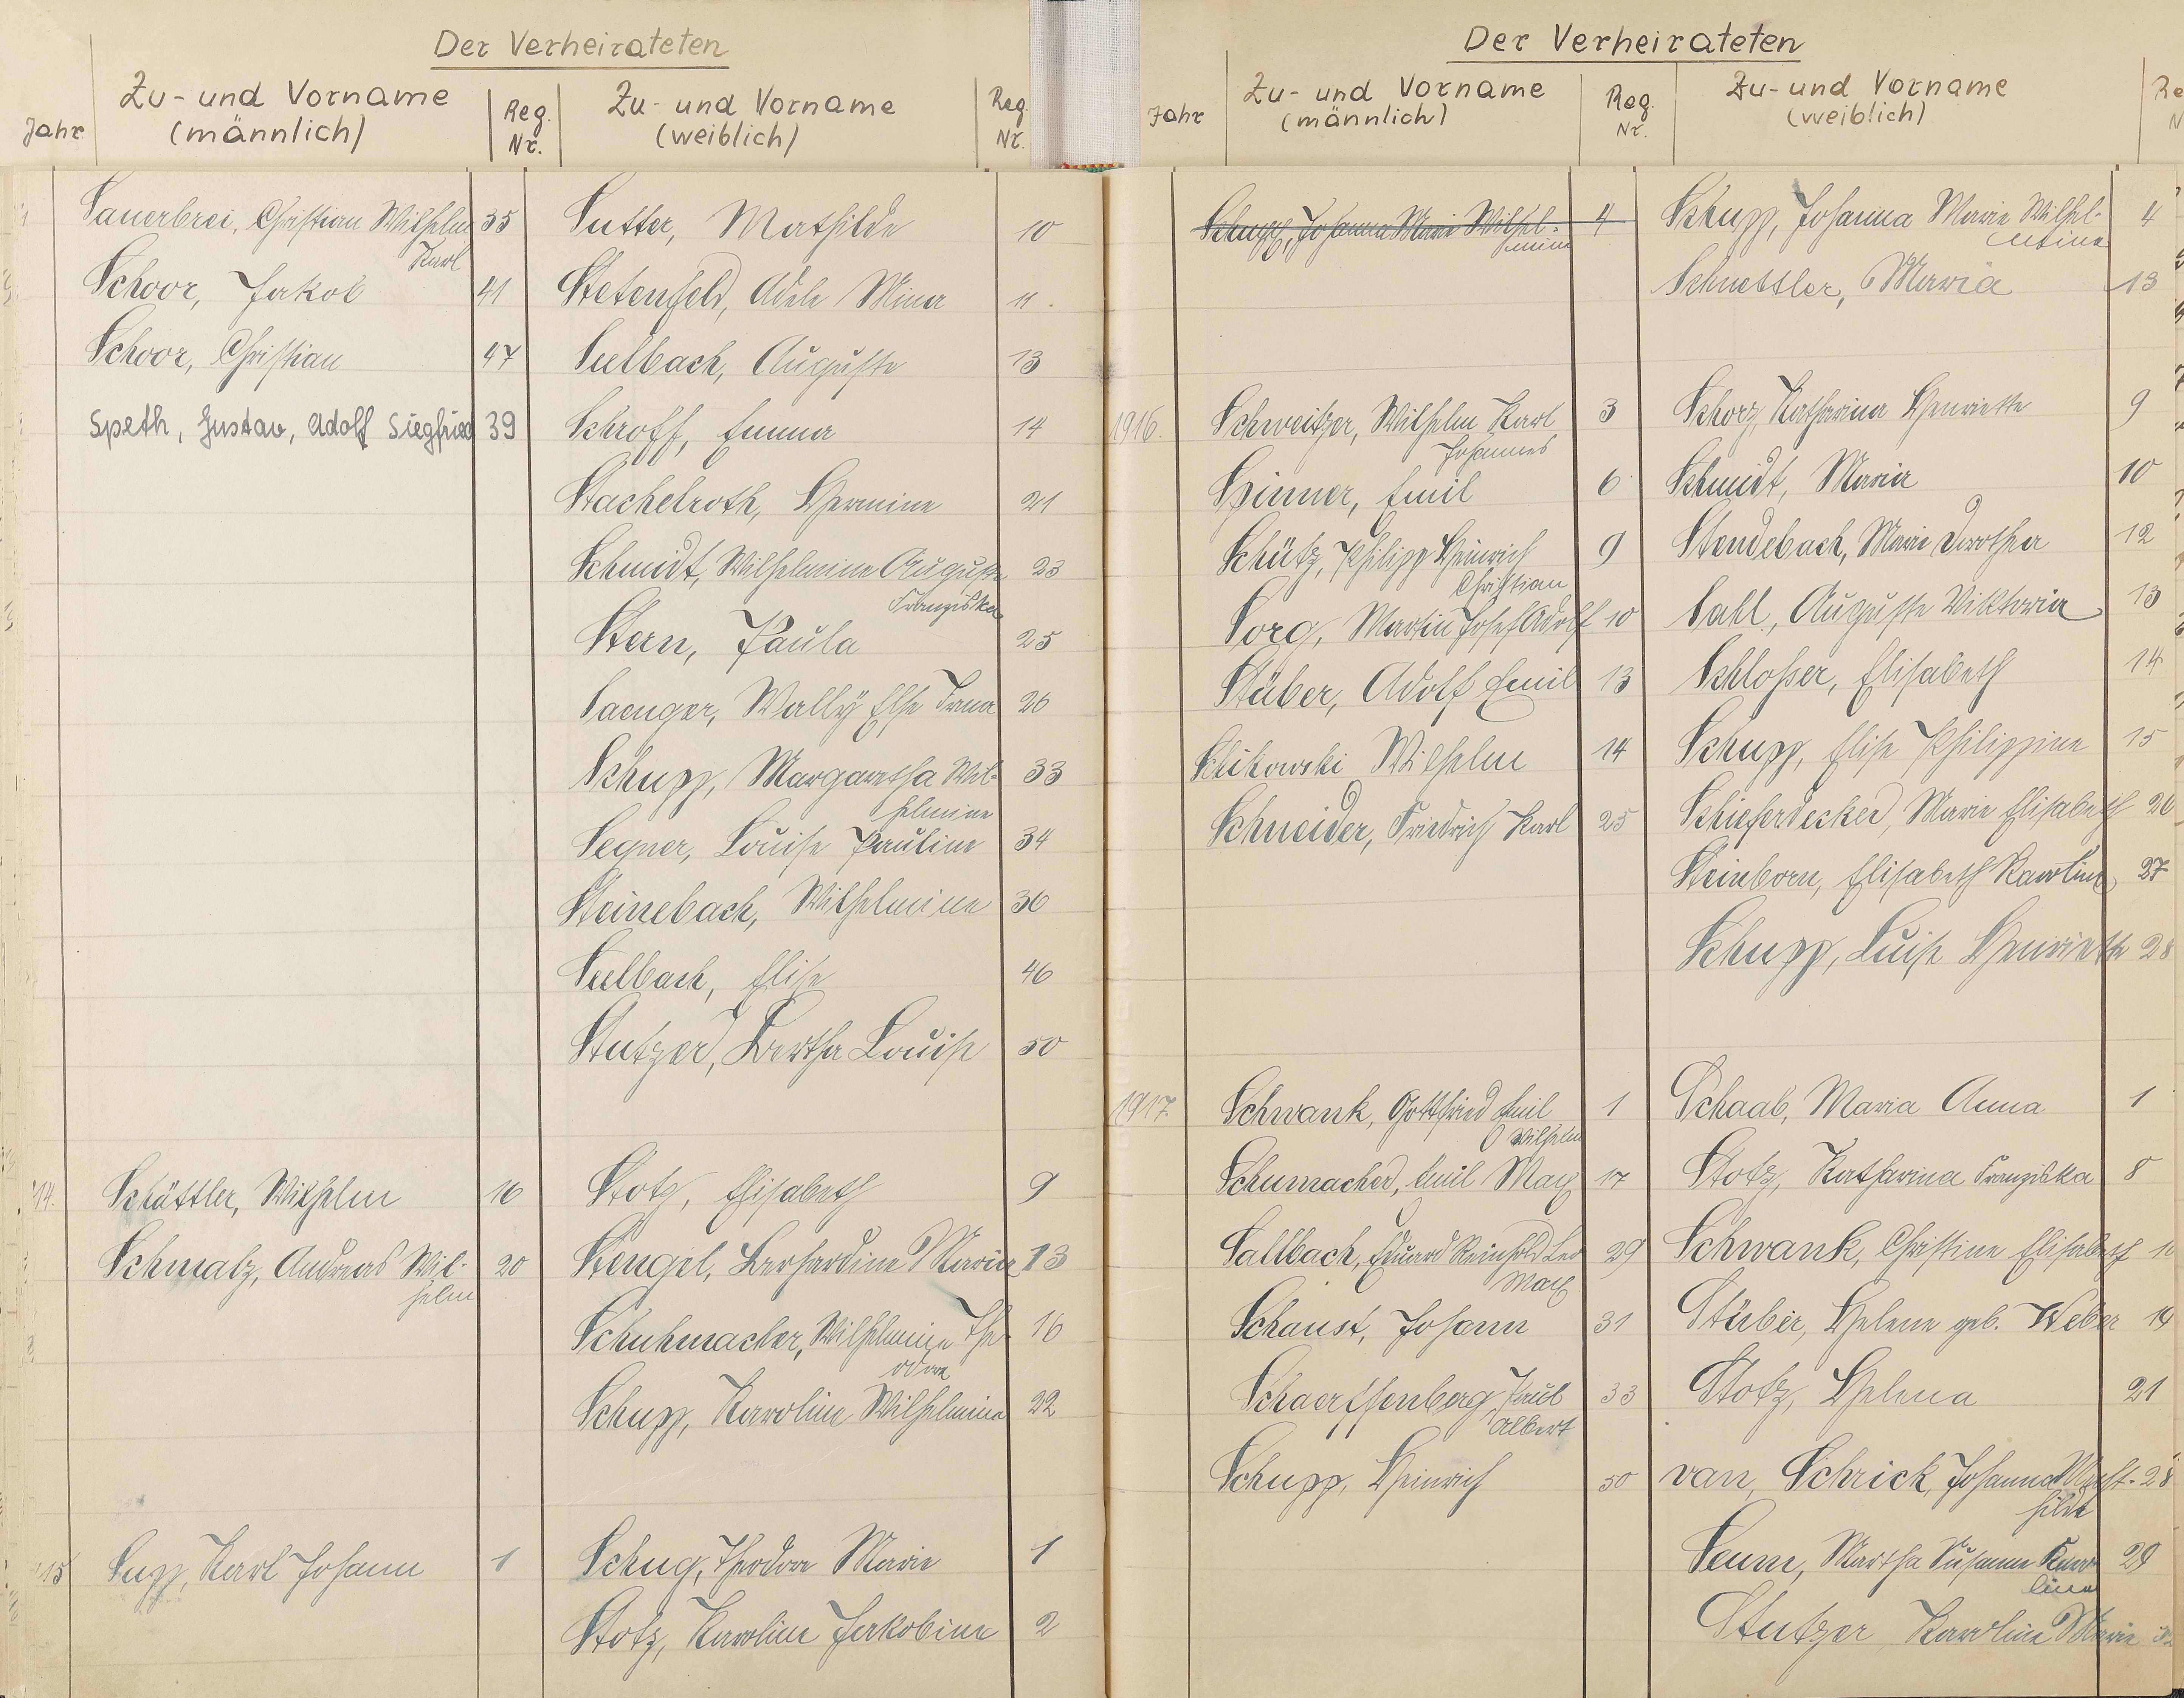 Der Verheirateten
Jahr
Zu- und Vorname
(männlich)
Reg.
Nr.
Zu- und Vorname
(weiblich)
Reg.
Nr.
Sauerbrei, Christian Wilhelm 35
Karl
Schoor, Jakob 41
Schoor, Christian 47
Speth, Gustav, Adolf Siegfried 39
Sutter, Mathilde 10
Stetenfeld, Adele Mina 11.
Seelbach, Auguste 13
Schroff, Emma 14
Stachelroth, Hermine 21
Schmidt, Wilhelmine Auguste 23
Franziska
Stern, Paula 25
Saenger, Wally Else Irma 26
Schupp, Margaretha Wil- 33
helmine
Segner, Louise Pauline 34
Steinebach, Wilhelmine 36
Seelbach, Elise 46
Stutzer, Bertha Louise 50
14. Schättler, Wilhelm 16
Schmalz, Andreas Wil- 20
helm
Stotz, Elisabeth 9
Stengel, Berhardine Maria 13
Schuhmacher, Wilhelmine The 16
odore
Schupp, Karoline Wilhelmine 22
15 Supp, Karl Johann 1
Schug, Theodore Marie 1
Stotz, Karoline Jakobine 2
Der Verheirateten
Jahr
Zu- und Vorname
(männlich)
Reg.
Nr.
Zu- und Vorname
(weiblich)
Re
N
Schupp, Johanna Marie Wilhel- 4
mine
Schupp, Johanna Marie Wilhel- 4
Schnettler, Maria 13
1916. Schweitzer, Wilhelm Karl 3
Johannes
Spinner, Emil 6
Schütz, Philipp Heinrich 9
Christian
Sorg, Martin Josef Adolf 10
Stüber, Adolf Emil 13
Slikowski Wilhelm 14
Schneider, Friedrich Karl 25
Schorz, Katharina Henriette 9
Schmidt, Maria 10
Stendebach, Marie Dorothea 12
Sahl, Auguste Viktoria 13
Schlosser, Elisabeth 14
Schupp, Elise Philippine 15
Schieferdecker, Marie Elisabeth 26
Steinborn, Elisabeth Karoline 27
Schupp, Luise Henriette 28
1917. Schwank, Gottfried Emil 1
Wilhelm
Schumacher, Emil Max 17
Sallbach, Eduard Reinhold Leo 29
Max
Schaust, Johann 31
Schaertfenberg, Paul 33
Albert
Schupp, Heinrich 50
Schaab, Maria Anna 1
Stotz, Katharina Franziska 8
Schwank, Christine Elisabeth
Stüber, Helene geb. Weber 14
Stotz, Helena 21
van Schrick, Johanna 28
hilde
Seum, Martha Susanna Karo 29
lina
Stutzer Karoline Marie